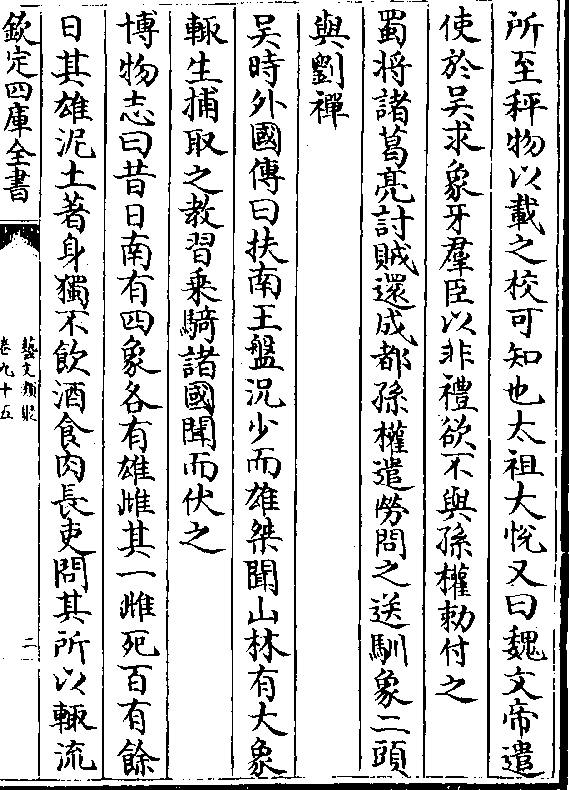 所至秤物以載之校可知也太祖大悅又曰魏文帝遣
使於吳求象牙羣臣以非禮欲不與孫權勅付之
蜀将諸葛亮討賊還成都孫權遣勞問之送馴象二頭
與劉禪
吳時外國傳曰扶南王盤況少而雄桀聞山林有大象
輙生捕取之教習乗騎諸國聞而伏之
博物志曰昔日南有四象各有雄雌其一雌死百有餘
日其雄泥土著身獨不飲酒食肉長吏問其所以輙流
欽定四庫全書
藝文類聚
卷九十五
二